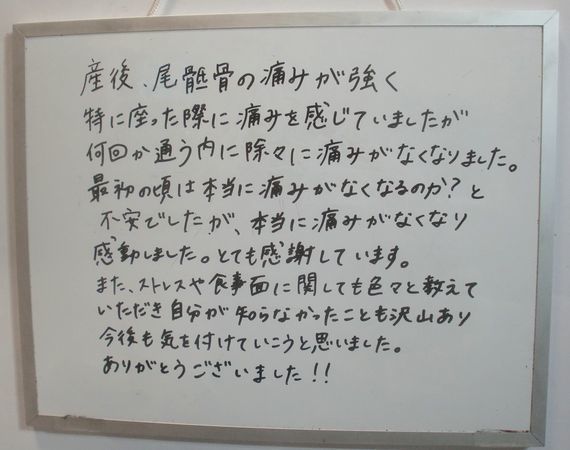 産後、尾骶骨の痛みが強く
特に座った際に痛みを感じていましたが
何回か通う内に除々に痛みがなくなりました。
最初の頃は本当に痛みがなくなるのか?と
不安でしたが、本当に痛みがなくなり
感動しました。とても感謝しています。
また、ストレスや食事面に関しても色々と教えて
いただき自分が知らなかったことも沢山あり
今後も気を付けていこうと思いました。
ありがとうございました!!